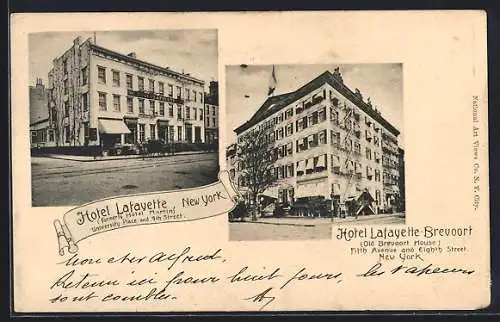 Hotel Lafayette
(formerly Hotel Martin)
University Place and 9th Street.
New York.
Hotel Lafayette-Brevoort
(Old Brevoort House)
Fifth Avenue and Eighth Street
New York
National Art Views Co. N. Y. City.
Mon cher Alfred,
Retenu ici pour huit jours, les vapeurs
sont combles.